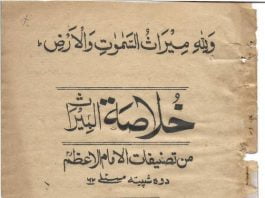 وَلِلّٰهِ مِيْرَاثُ السَّمٰوٰتِ وَالْاَرْضِ ط
خُلاصَة المِيْرَاث
من تصنیفات الامام الاعظمؒ